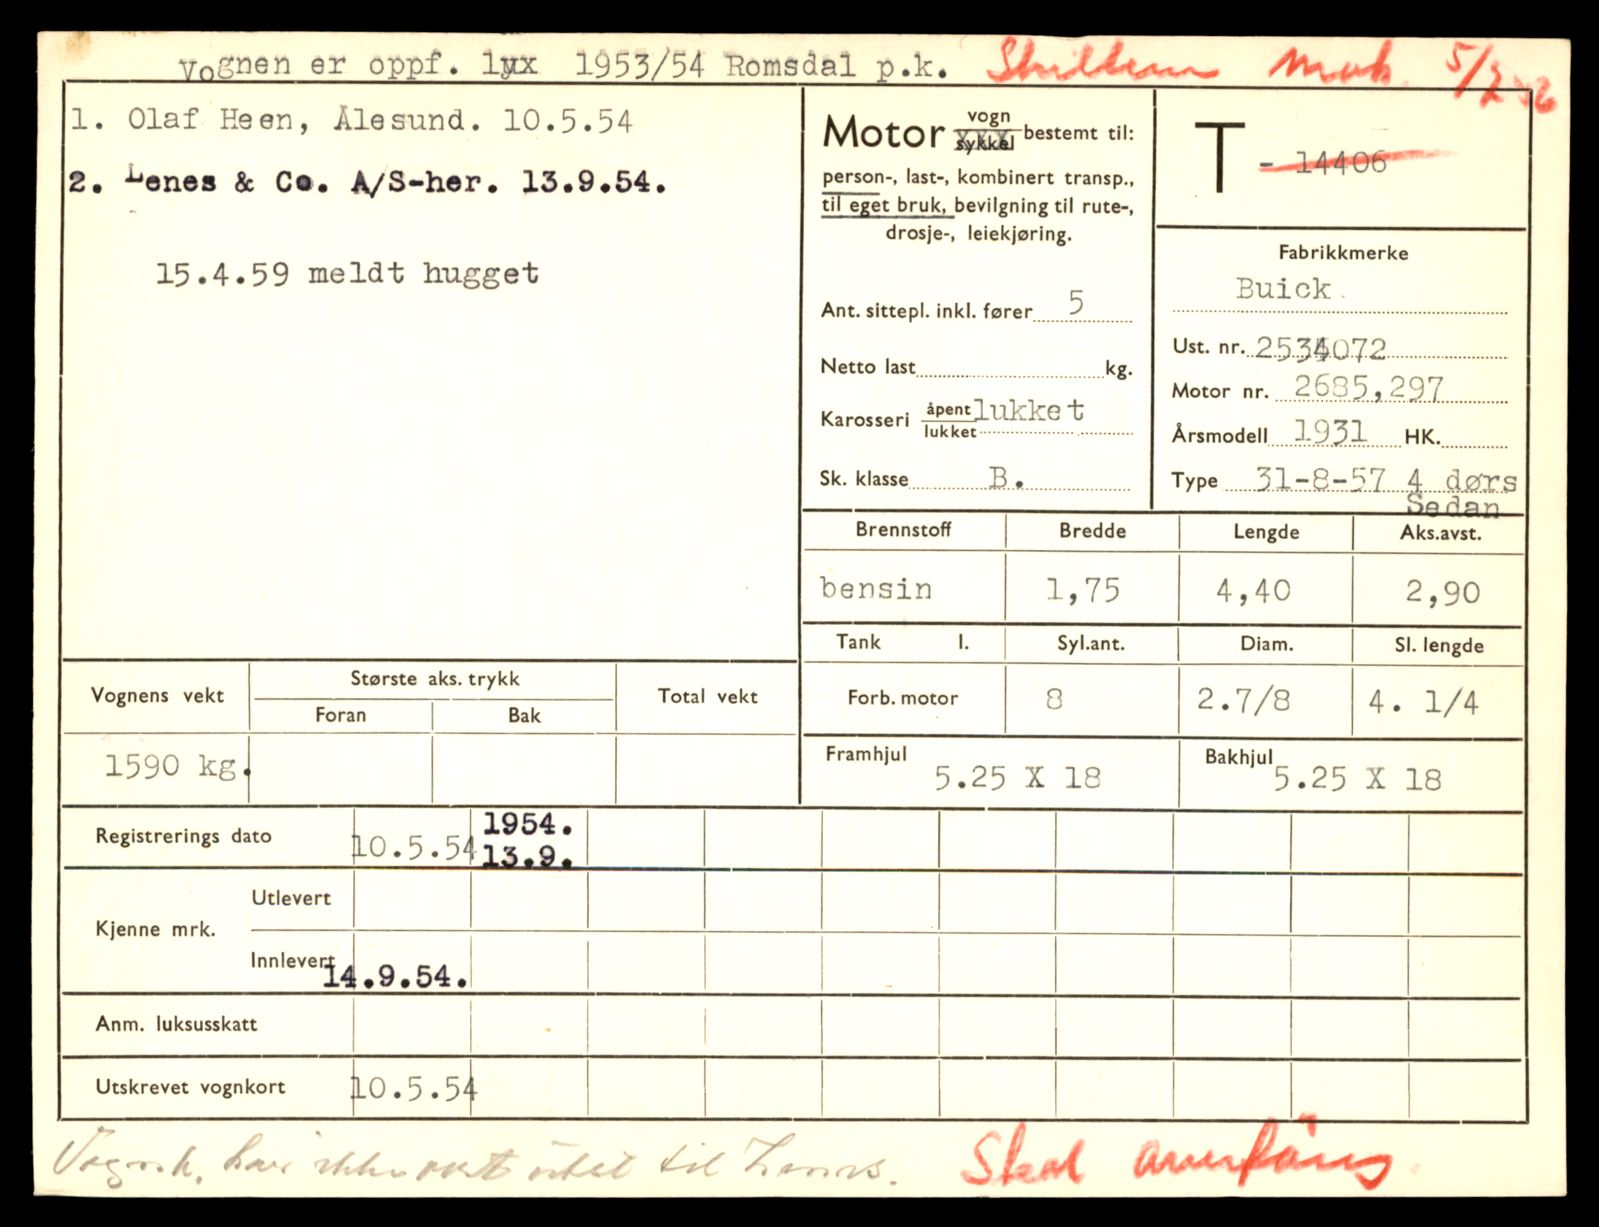 Vognen er oppf. lyx 1953/54 Romsdal p.k. Skiltene mot. 5/2 56
1. Olaf Heen, Ålesund. 10.5.54
2. Lenes & Co. A/S-her. 13.9.54.
15.4.59 meldt hugget
Motor vogn
sykkel bestemt til:
person-, last-, kombinert transp.,
til eget bruk, bevilgning til rute-,
drosje-, leiekjøring.
Ant. sittepl. inkl. fører 5
Netto last kg.
Karosseri åpent lukket
lukket
Sk. klasse B.
T - 14406
Fabrikkmerke
Buick.
Ust. nr. 2534072
Motor nr. 2685,297
Årsmodell 1931 HK.
Type 31-8-57 4 dørs
Sedan
Brennstoff Bredde Lengde Aks.avst.
bensin 1,75 4,40 2,90
Tank l. Syl.ant. Diam. Sl. lengde
Forb. motor 8 2.7/8 4. 1/4
Framhjul 5.25 X 18 Bakhjul 5.25 X 18
Vognens vekt Største aks. trykk Total vekt
Foran Bak
1590 kg.
Registrerings dato 10.5.54 1954.
13.9.
Kjenne mrk. Utlevert
Innlevert 14.9.54.
Anm. luksusskatt
Utskrevet vognkort 10.5.54
Vognk. har ikke vært til Lenes. Skal